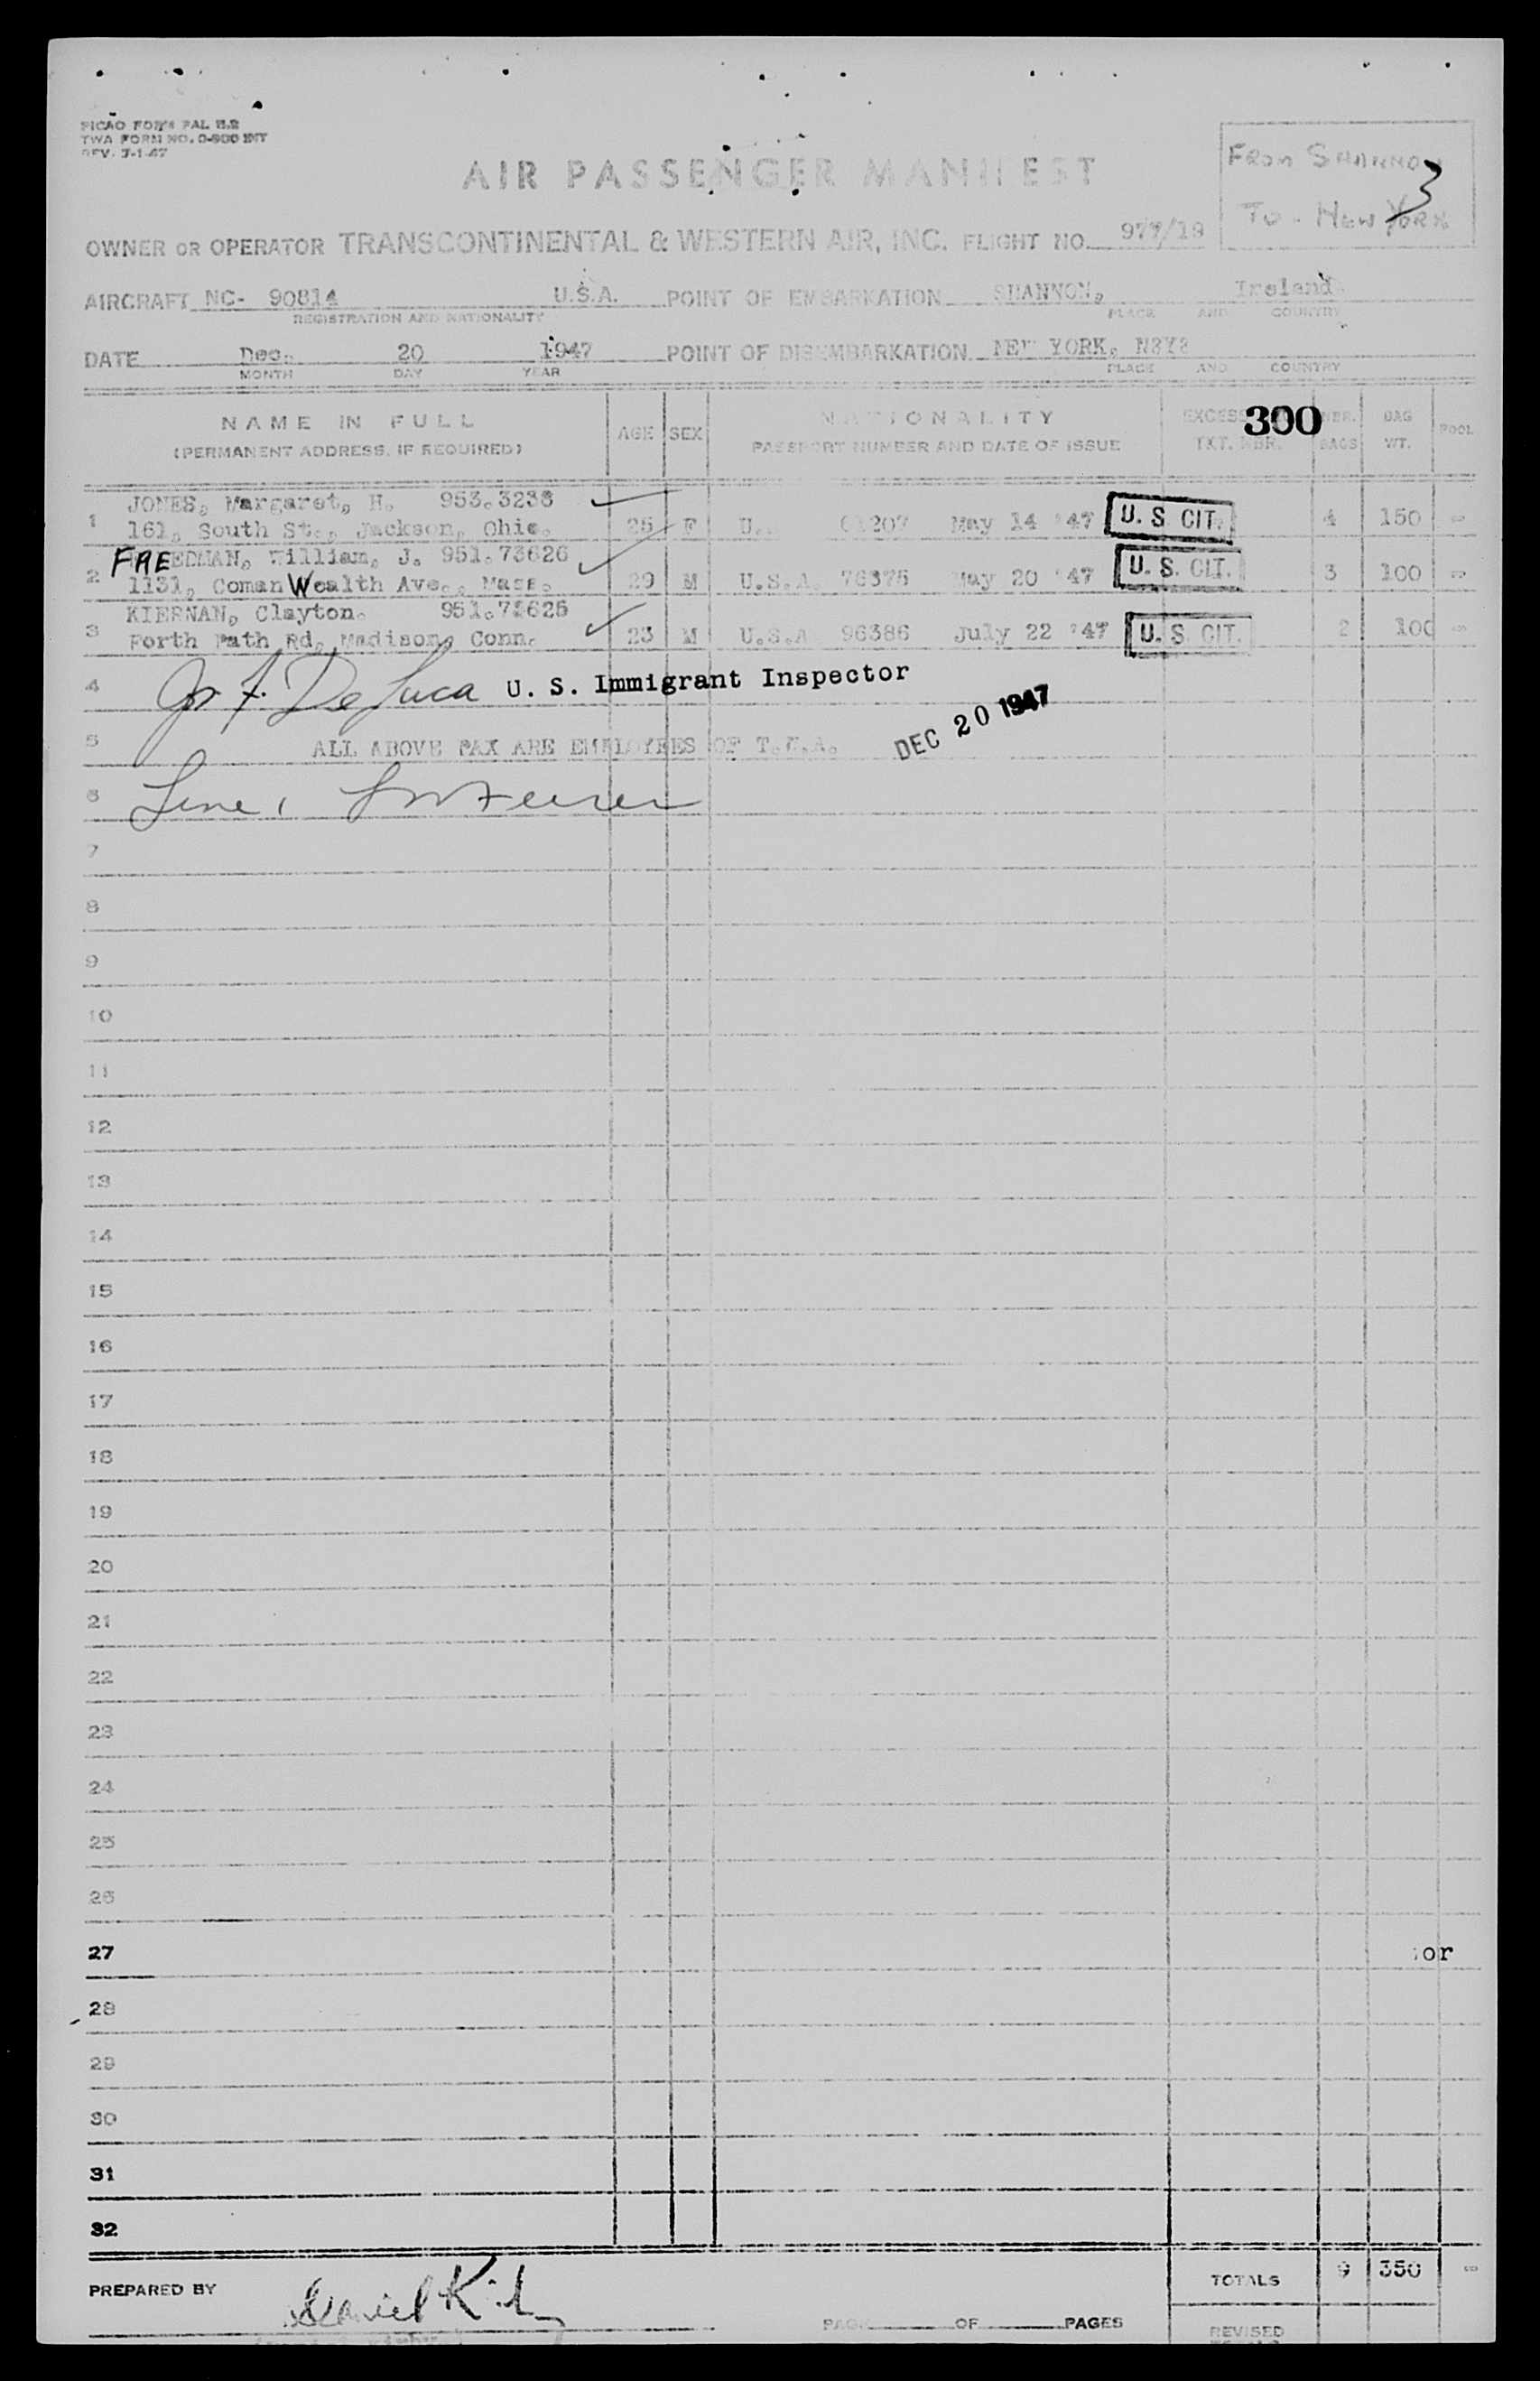 PICAO FORM PAL
TWA FORM NO. 0-900 INT
REV. 7-1-47
FROM SHANNON
TO - NEW YORK
3
AIR PASSENGER MANIFEST
OWNER OR OPERATOR TRANSCONTINENTAL & WESTERN AIR, INC. FLIGHT NO. 977/19
AIRCRAFT NC- 90814 U.S.A. POINT OF EMBARKATION SHANNON, Ireland
REGISTRATION AND NATIONALITY PLACE AND COUNTRY
DATE Dec. 20 1947 POINT OF DISEMBARKATION NEW YORK, N3Y3
MONTH DAY YEAR PLACE AND COUNTRY
NAME IN FULL AGE SEX NATIONALITY EXCESS 300 NBR. BAG POOL
(PERMANENT ADDRESS, IF REQUIRED) PASSPORT NUMBER AND DATE OF ISSUE TKT. NBR. BAGS WT.
JONES, Margaret, H. 953.3233
1 161, South St., Jackson, Ohio. 25 F U. 207 May 14 '47 U. S. CIT. 4 150 -
FREEDMAN, William, J. 951.73626
2 1131, ComanWealth Ave., Mass. 29 M U.S.A. 76375 May 20 '47 U. S. CIT. 3 100 -
KIERNAN, Clayton. 951.73625
3 Forth Path Rd, Madison, Conn. 23 M U.S.A 96386 July 22 '47 U. S. CIT. 2 100 -
4 De Luca U. S. Immigrant Inspector
5 ALL ABOVE PAX ARE EMPLOYEES OF T.W.A. DEC 20 1947
6
7
8
9
10
11
12
13
14
15
16
17
18
19
20
21
22
23
24
25
26
27 or
28
29
30
31
32
PREPARED BY Daniel TOTALS 9 350 -
PAGE OF PAGES
REVISED